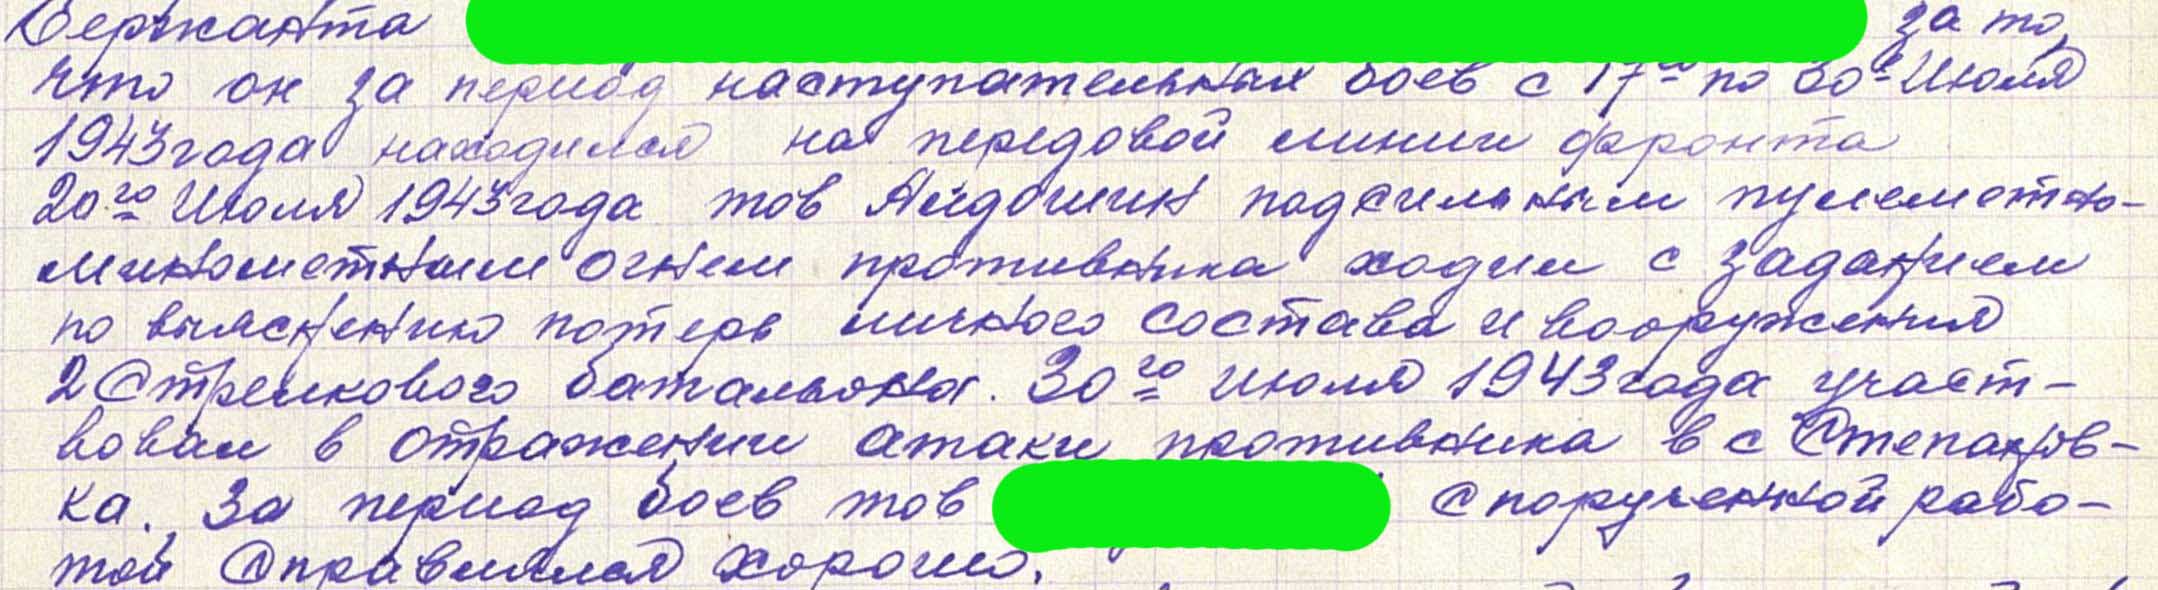 Сержанта за то,
что он за период наступательных боев с 17го по 30е Июля
1943 года находился на передовой линии фронта
20го Июля 1943 года тов Айдошин под сильным пулеметно-
минометным огнем противника ходил с заданием
по выяснению потерь личного состава и вооружения
2 Стрелкового батальона. 30го Июля 1943 года участ-
вовал в отражении атаки противника в с Степанов-
ка. За период боев тов С порученной рабо-
той Справлялся хорошо.